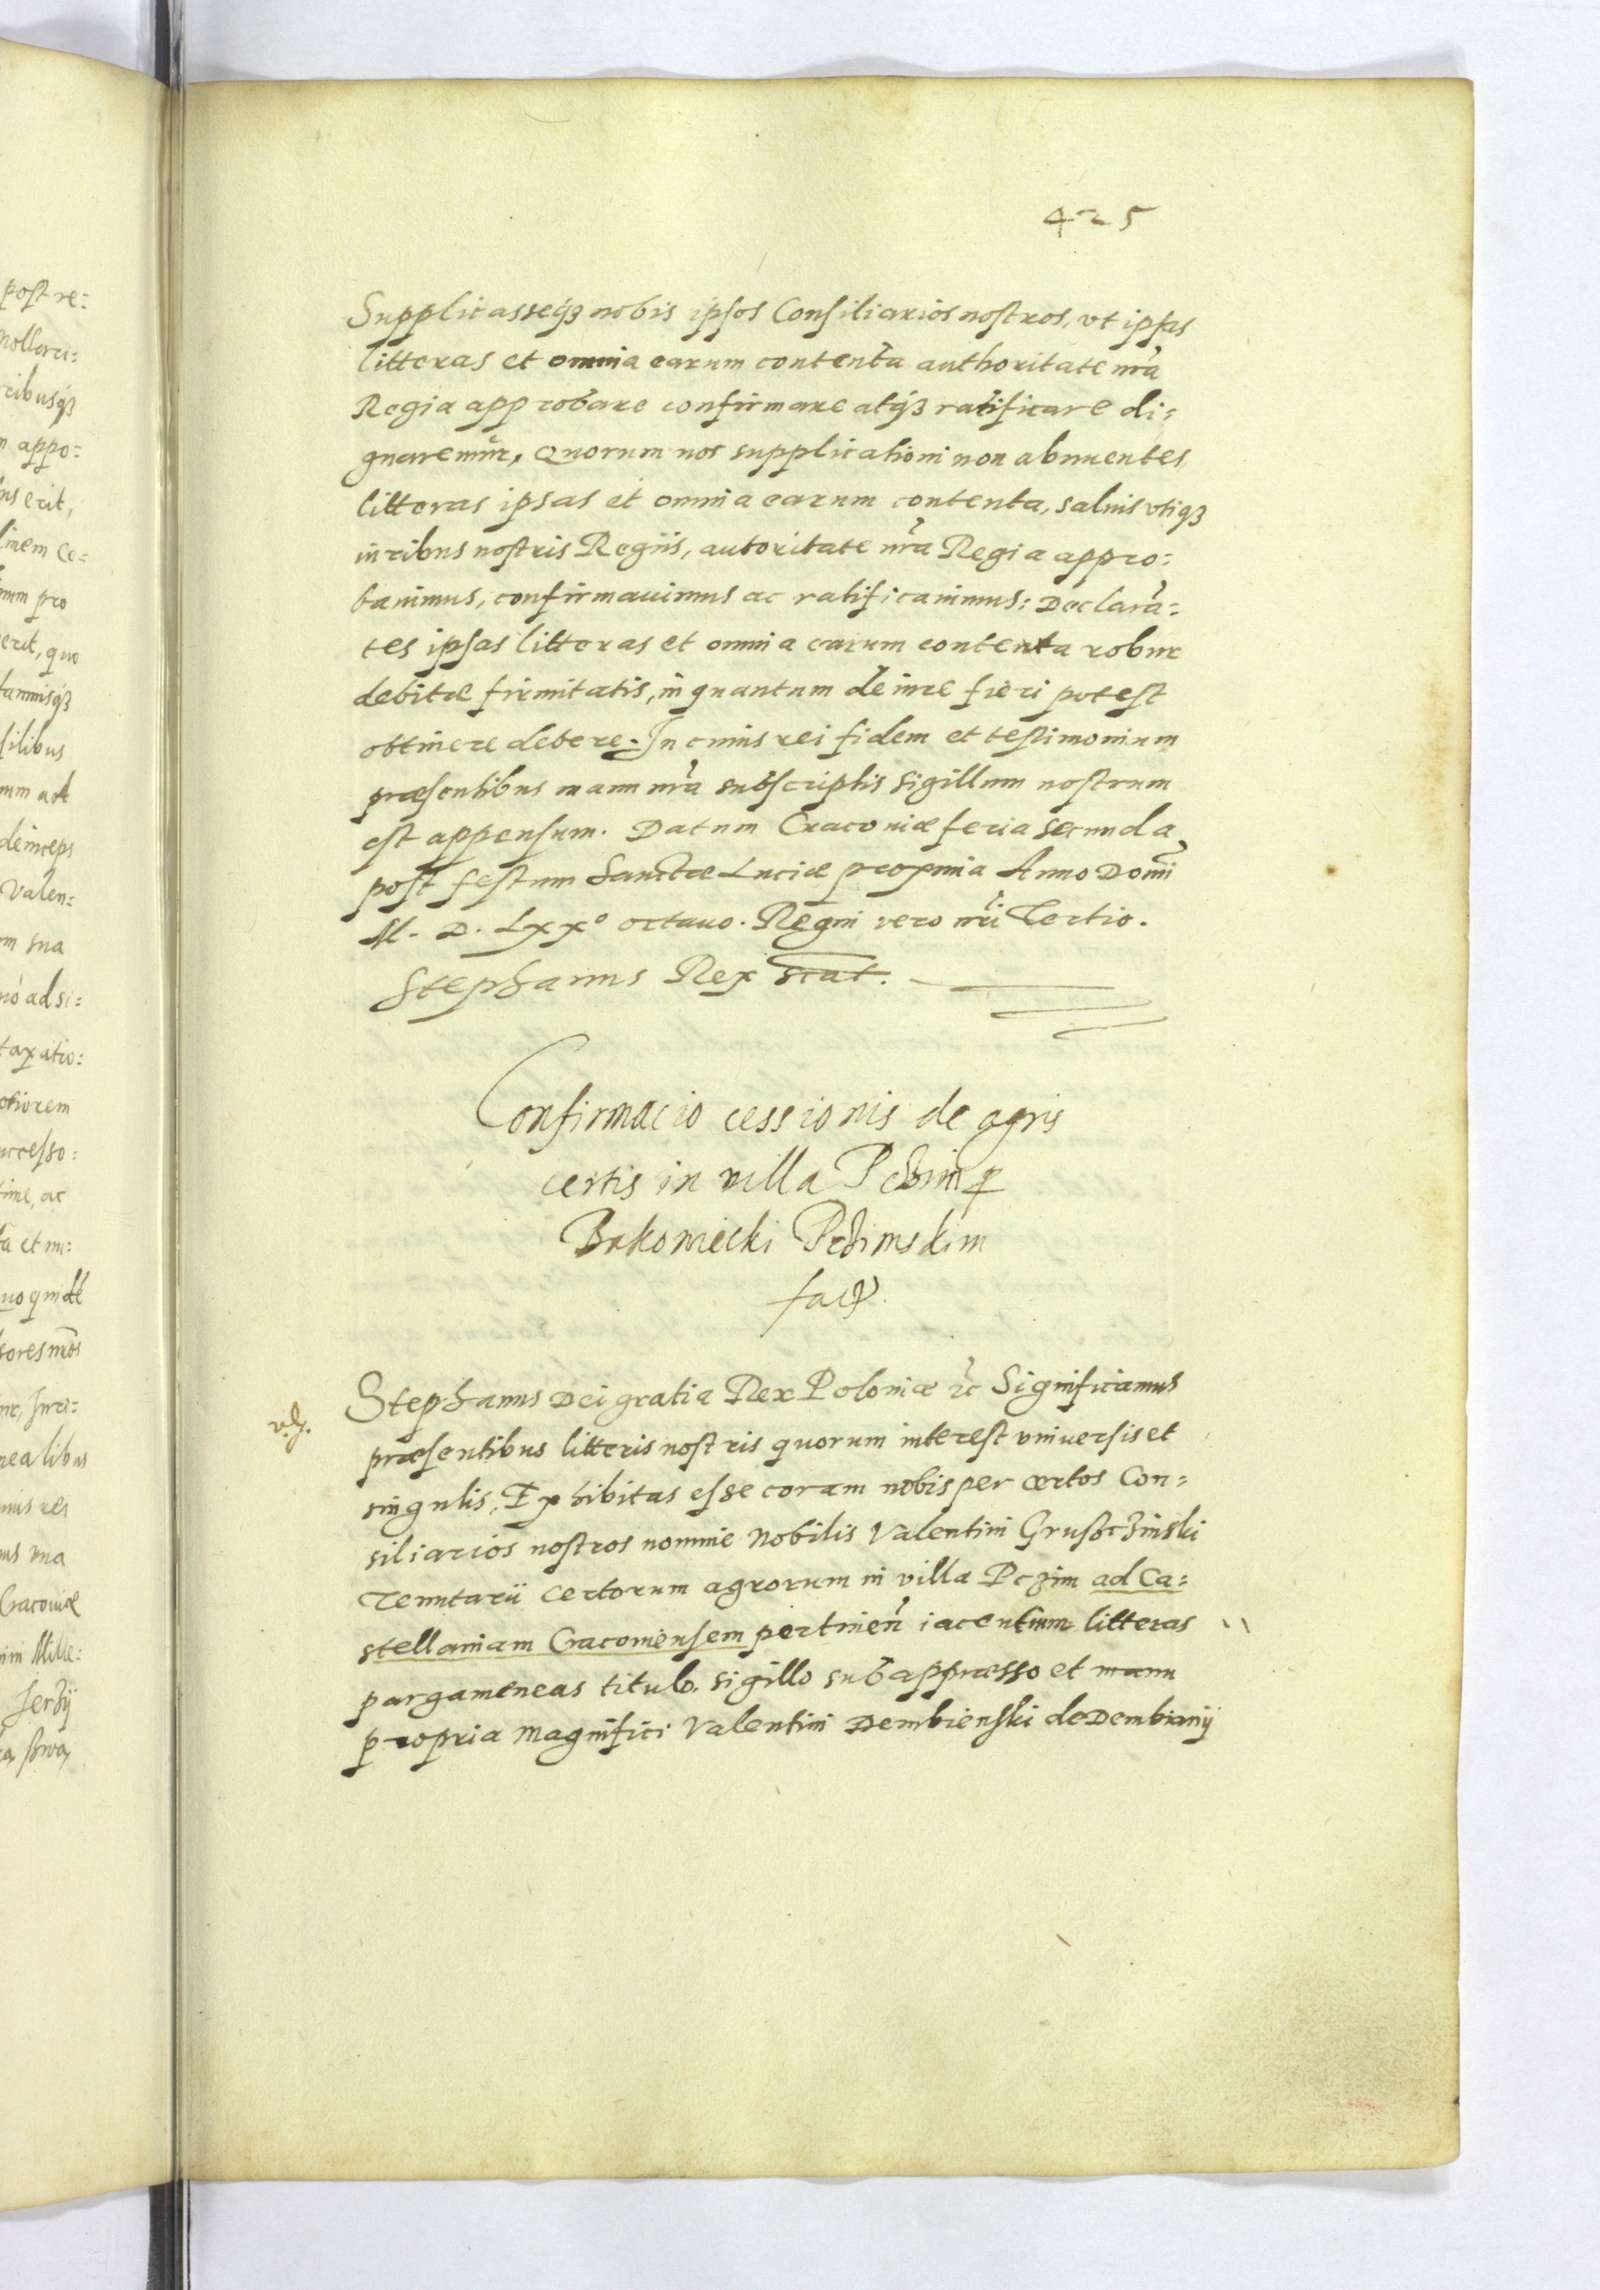 425
Supplicasseq3 nobis ipsos Consiliarios nostros, vt ipsas
litteras et omnia earum contenta authoritate nr̃a
Regia approbare confirmare atq3 ratificare di=
gnaremur. Quorum nos supplicationi non abnuentes,
litteras ipsas et omnia earum contenta, saluis vtiq3
iuribus nostris Regiis, autoritate nr̃a Regia appro=
bauimus, confirmauimus ac ratificauimus: Declarã=
tes ipsas litteras et omnia earum contenta robur
debitæ firmitatis, in quantum de iure fieri potest
obtinere debere. In cuius rei fidem et testimonium
præsentibus manu nr̃a subscriptis sigillum nostrum
est appensum. Datum Cracouiæ feria secunda
post festum Sanctæ Luciæ proxima Anno Domĩ
M. D. Lxx° octauo. Regni vero nr̃i Tertio.
Stephanus Rex
Confirmacio cessionis de agris
certis in villa Pczim
Bukowiecki Pczimskim
Stephanus Dei gratia Rex Poloniæ &c̃ Significamus
v.g.
præsentibus litteris nostris quorum interest vniuersis et
singulis, Exhibitas esse coram nobis per certos Con=
siliarios nostros nomine Nobilis Valentini Grusczinski
Tenutarii certorum agrorum in villa Pczim ad Ca=
stellaniam Cracouiensem pertineñ iacentium litteras
pargameneas titulo, sigillo subappresso et manu
propria Magnifici Valentini Dembienski de Dembianÿ
post re=
cibusq3
appo=
erit,
pro
erit, quo
deinceps
Valen=
sua
ad si=
taxatio=
ac
et